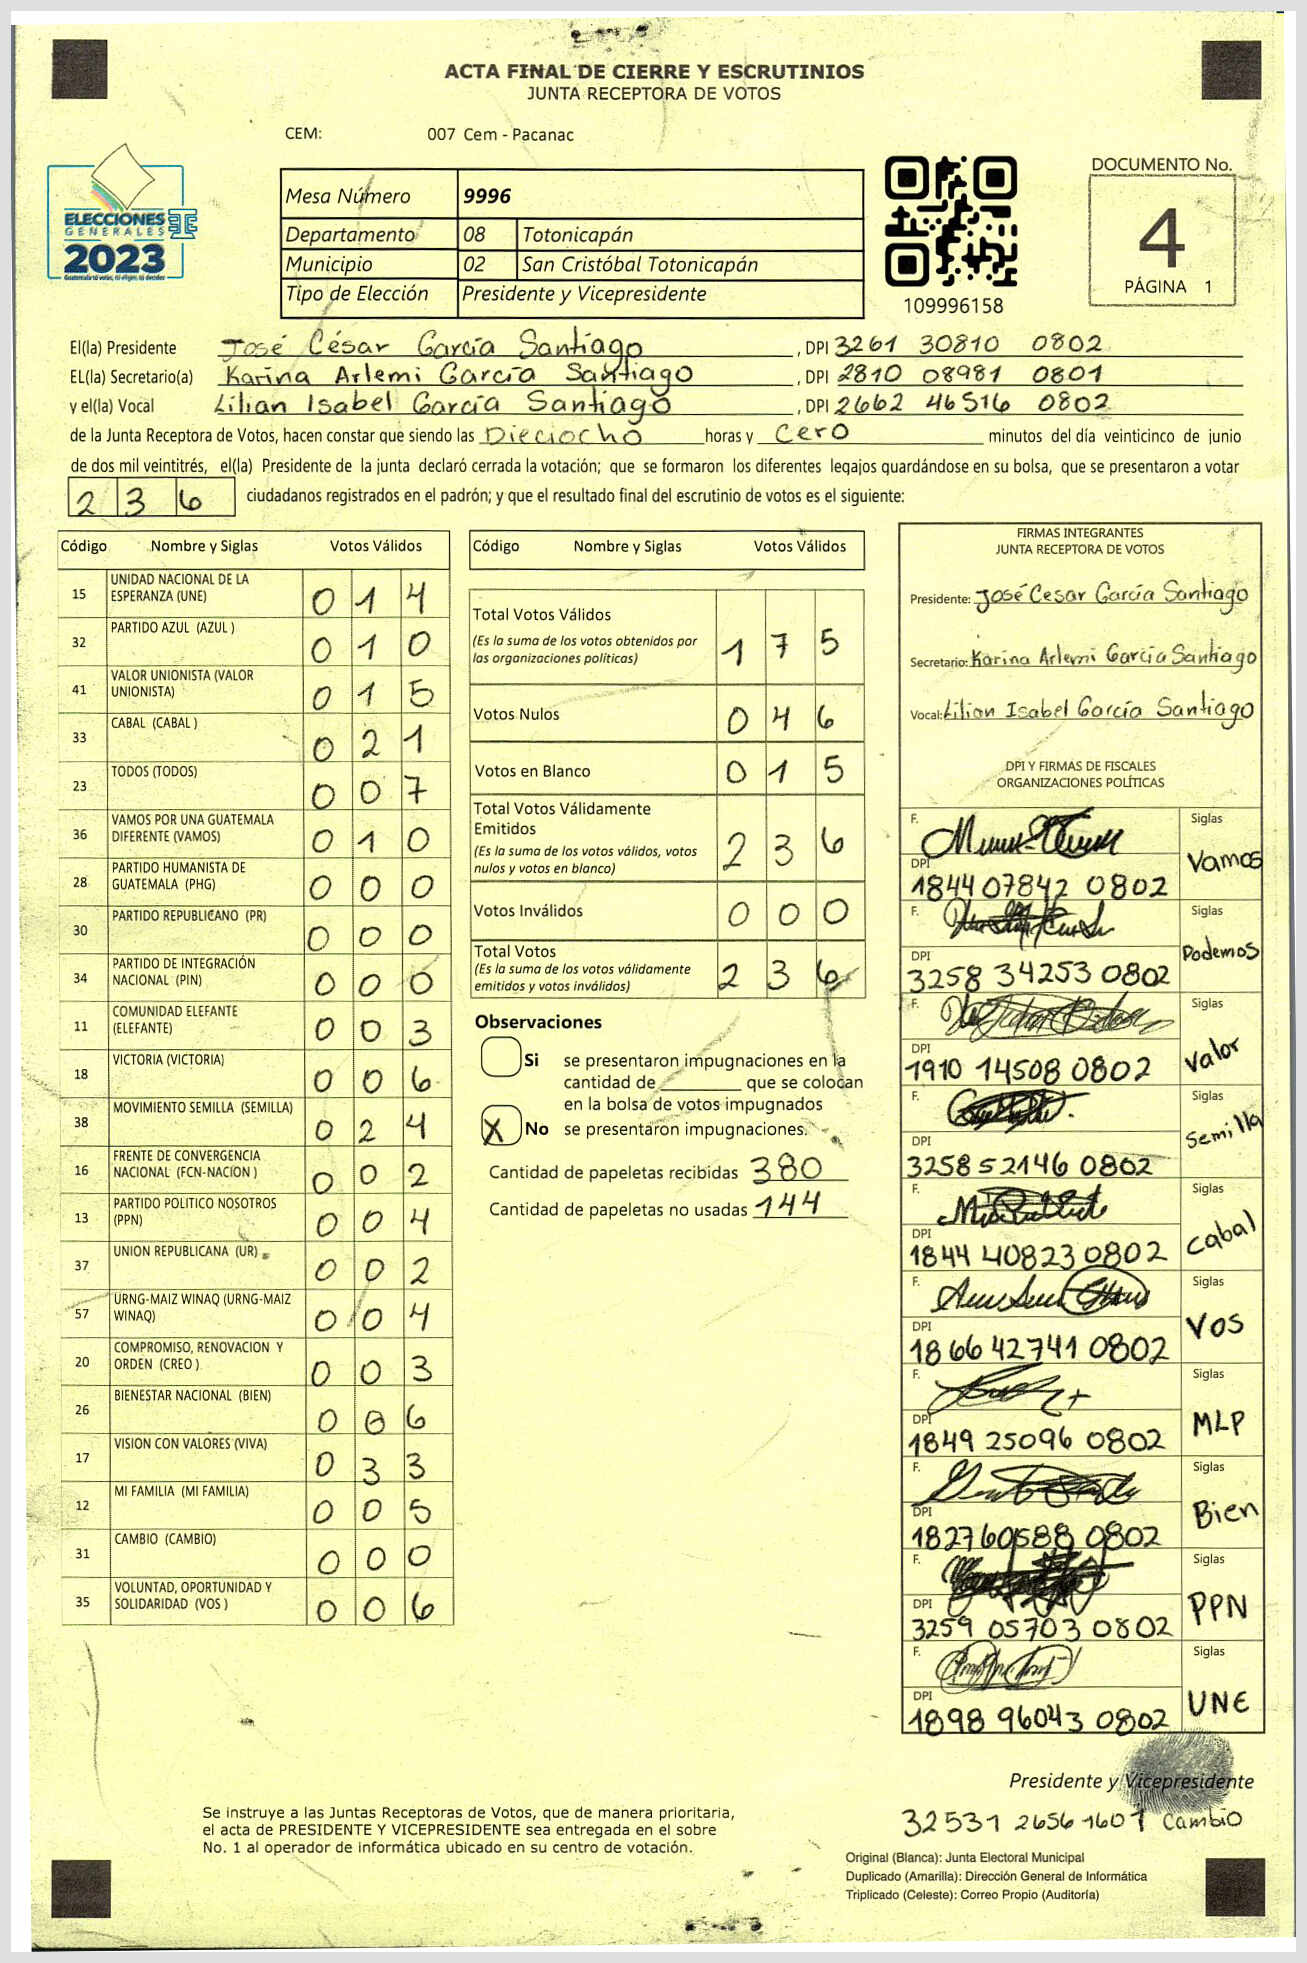 ACTA FINAL DE CIERRE Y ESCRUTINIOS
JUNTA RECEPTORA DE VOTOS
CEM: 007 Cem - Pacanac
ELECCIONES
GENERALES
2023
Guatemala tú votas, tú eliges, tú decides
Mesa Número 9996
Departamento 08 Totonicapán
Municipio 02 San Cristóbal Totonicapán
Tipo de Elección Presidente y Vicepresidente
109996158
DOCUMENTO No.
4
PÁGINA 1
El(la) Presidente José César García Santiago , DPI 3261 30810 0802
EL(la) Secretario(a) Karina Arlemi García Santiago , DPI 2810 08981 0801
y el(la) Vocal Lilian Isabel García Santiago , DPI 2662 46516 0802
de la Junta Receptora de Votos, hacen constar que siendo las Dieciocho horas y cero minutos del día veinticinco de junio
de dos mil veintitrés, el(la) Presidente de la junta declaró cerrada la votación; que se formaron los diferentes legajos guardándose en su bolsa, que se presentaron a votar
236 ciudadanos registrados en el padrón; y que el resultado final del escrutinio de votos es el siguiente:
Código Nombre y Siglas Votos Válidos
15 UNIDAD NACIONAL DE LA ESPERANZA (UNE) 0 1 4
32 PARTIDO AZUL (AZUL ) 0 1 0
41 VALOR UNIONISTA (VALOR UNIONISTA) 0 1 5
33 CABAL (CABAL ) 0 2 1
23 TODOS (TODOS) 0 0 7
36 VAMOS POR UNA GUATEMALA DIFERENTE (VAMOS) 0 1 0
28 PARTIDO HUMANISTA DE GUATEMALA (PHG) 0 0 0
30 PARTIDO REPUBLICANO (PR) 0 0 0
34 PARTIDO DE INTEGRACIÓN NACIONAL (PIN) 0 0 0
11 COMUNIDAD ELEFANTE (ELEFANTE) 0 0 3
18 VICTORIA (VICTORIA) 0 0 6
38 MOVIMIENTO SEMILLA (SEMILLA) 0 2 4
16 FRENTE DE CONVERGENCIA NACIONAL (FCN-NACION ) 0 0 2
13 PARTIDO POLITICO NOSOTROS (PPN) 0 0 4
37 UNION REPUBLICANA (UR) 0 0 2
57 URNG-MAIZ WINAQ (URNG-MAIZ WINAQ) 0 0 4
20 COMPROMISO, RENOVACION Y ORDEN (CREO ) 0 0 3
26 BIENESTAR NACIONAL (BIEN) 0 0 6
17 VISION CON VALORES (VIVA) 0 3 3
12 MI FAMILIA (MI FAMILIA) 0 0 5
31 CAMBIO (CAMBIO) 0 0 0
35 VOLUNTAD, OPORTUNIDAD Y SOLIDARIDAD (VOS ) 0 0 6
Código Nombre y Siglas Votos Válidos
Total Votos Válidos 1 7 5
(Es la suma de los votos obtenidos por
las organizaciones políticas)
Votos Nulos 0 4 6
Votos en Blanco 0 1 5
Total Votos Válidamente
Emitidos 2 3 6
(Es la suma de los votos válidos, votos
nulos y votos en blanco)
Votos Inválidos 0 0 0
Total Votos 2 3 6
(Es la suma de los votos válidamente
emitidos y votos inválidos)
Observaciones
Si se presentaron impugnaciones en la
cantidad de ________ que se colocan
en la bolsa de votos impugnados
X No se presentaron impugnaciones.
Cantidad de papeletas recibidas 380
Cantidad de papeletas no usadas 144
FIRMAS INTEGRANTES
JUNTA RECEPTORA DE VOTOS
Presidente: José Cesar García Santiago
Secretario: Karina Arlemi García Santiago
Vocal: Lilian Isabel García Santiago
DPI Y FIRMAS DE FISCALES
ORGANIZACIONES POLÍTICAS
F. Siglas Vamos
DPI 1844 07842 0802
F. Siglas Podemos
DPI 3258 34253 0802
F. Siglas Valor
DPI 1910 14508 0802
F. Siglas Semilla
DPI 3258 52146 0802
F. Siglas Cabal
DPI 1844 40823 0802
F. Siglas VOS
DPI 1866 42741 0802
F. Siglas MLP
DPI 1849 25096 0802
F. Siglas Bien
DPI 1827 60588 0802
F. Siglas PPN
DPI 3259 05703 0802
F. Siglas UNE
DPI 1898 96043 0802
Presidente y Vicepresidente
32531 2656 1607 Cambio
Se instruye a las Juntas Receptoras de Votos, que de manera prioritaria,
el acta de PRESIDENTE Y VICEPRESIDENTE sea entregada en el sobre
No. 1 al operador de informática ubicado en su centro de votación.
Original (Blanca): Junta Electoral Municipal
Duplicado (Amarilla): Dirección General de Informática
Triplicado (Celeste): Correo Propio (Auditoría)